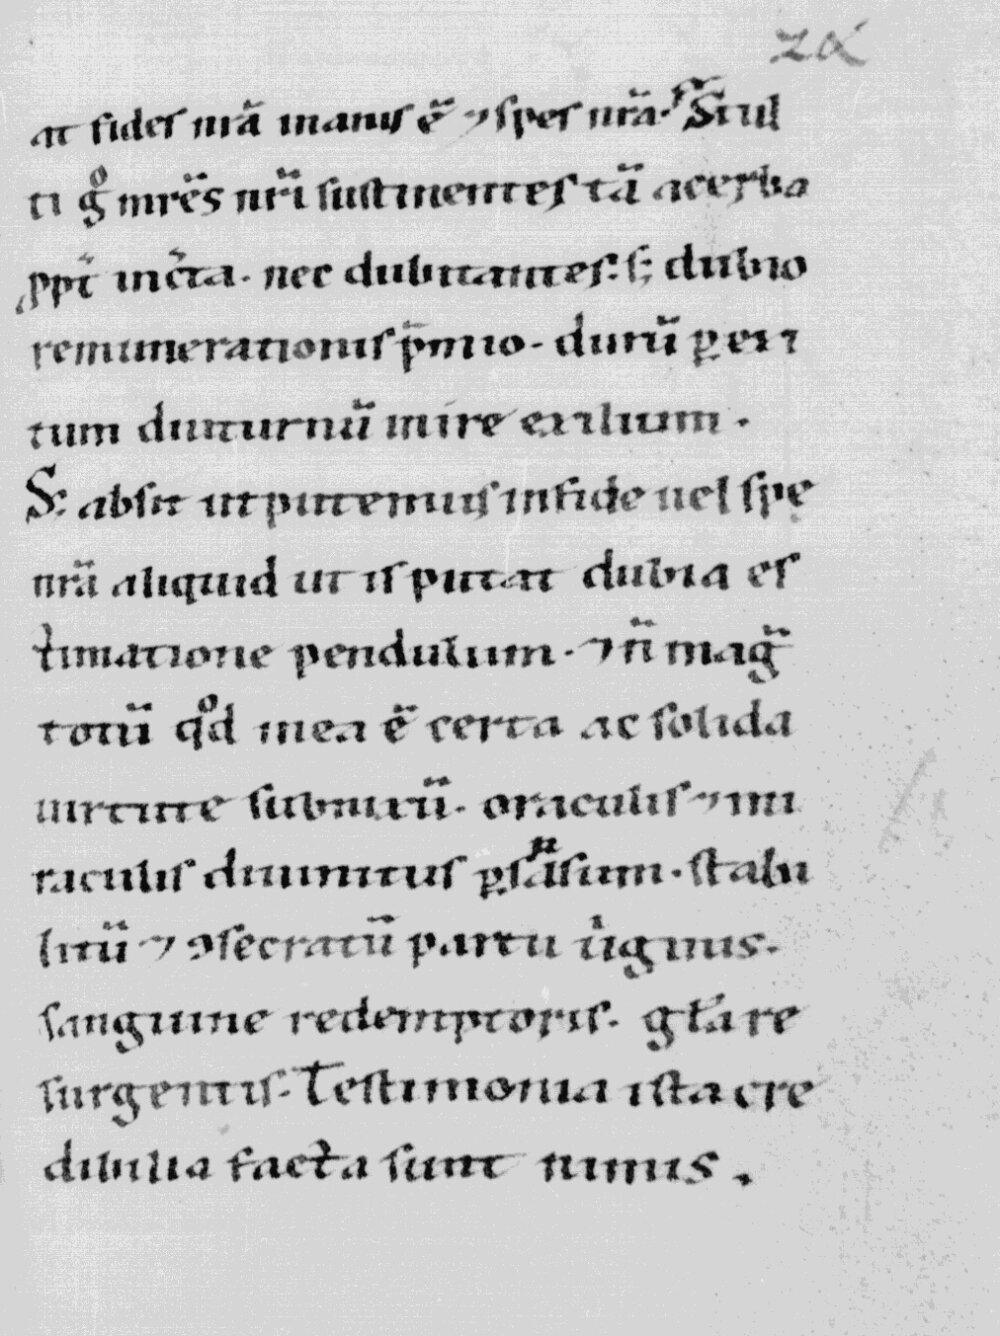 at fides nr̄a inanis ē ⁊ spes nr̄a. Stul
ti gͦ mr̄es nr̄i sustinentes tā acerba
ꝓpt̄ inc̄ta. nec dubitantes: s; dubio
remunerationis p̄mio. durū ꝑ eri
tum diuturnū mire exilium.
S; absit ut putemus in fide uel spe
nr̄a aliquid ut is putat dubia es
timatione pendulum. ⁊ n̄ maḡ
totū qͦd mea ē certa ac solida
uirtute subnixū. oraculis ⁊ mi
raculis diuinitus ꝑsᵃsum. stabi
litū ⁊ ꝯsecratū partu uͥginis.
sanguine redemptoris. gl̄a re
surgentis. Testimonia ista cre
dibilia facta sunt nimis.